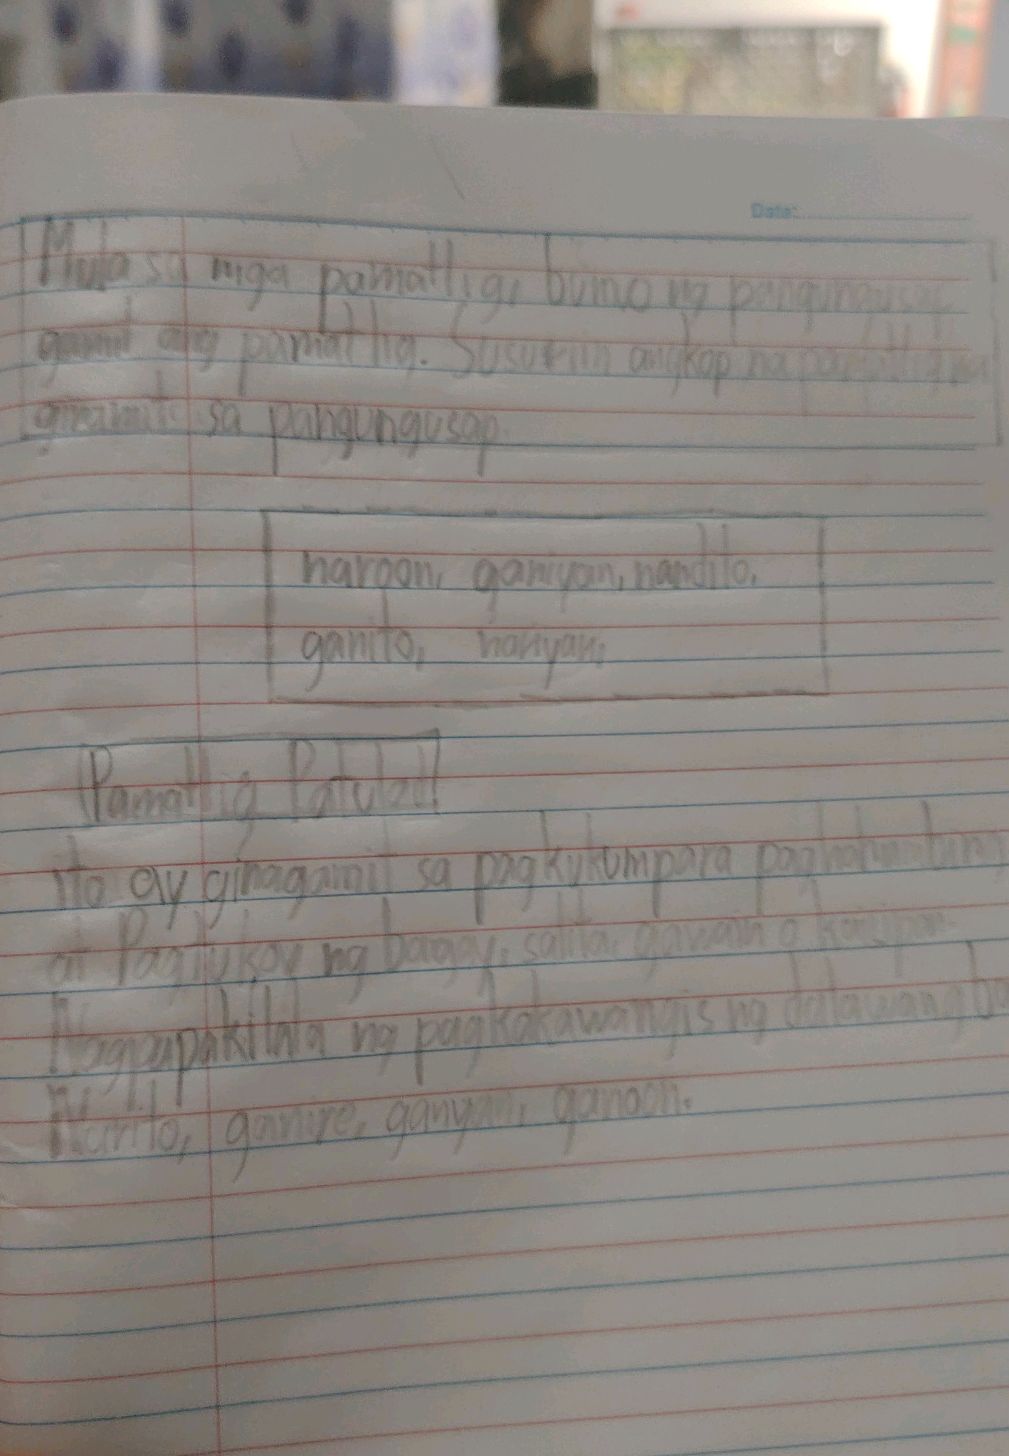 Date:
Mula sa mga pamatlig, bumo ng pangungusap
gamit ang pamatlig. Susuriin angkap na pamatlig na
ginamit sa pangungusap.
naroon, ganiyan, nandito,
ganito, nariyan,
Pamatlig Patulad
ito ay ginagamit sa pagkukumpara paghahambing
at Pagtukoy ng bagay, salita, gawain o kaisipan.
Nagpapakilala ng pagkakawangis ng dalawang ba
Narito, ganire, ganyan, ganoon.